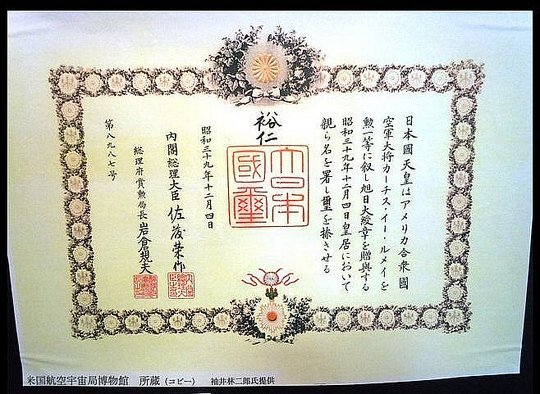 日本國天皇はアメリカ合衆國
空軍大将カーチス・イー・ルメイを
勲一等に叙し旭日大綬章を贈與する
昭和三十九年十二月四日皇居において
親ら名を署し璽を捺させる
裕仁
大日本國璽
昭和三十九年十二月四日
内閣総理大臣 佐藤栄作
総理府賞勲局長 岩倉規夫
第八九八七号
米国航空宇宙局博物館 所蔵(コピー) 袖井林二郎氏提供